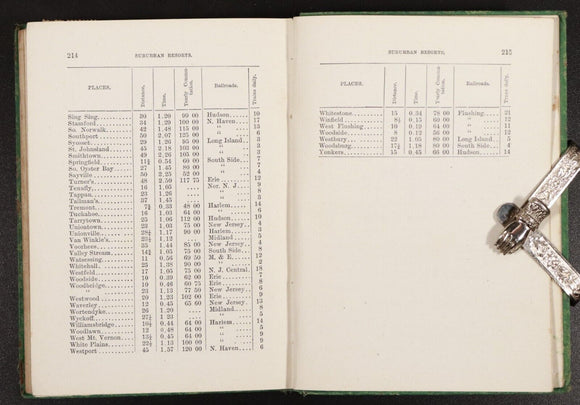 214 SUBURBAN RESORTS.
PLACES. Distance. Time. Yearly Commutation. Railroads. Times daily.
Sing Sing 30 1.20 90 00 Hudson 10
Stamford 34 1.29 100 00 N. Haven 17
So. Norwalk 42 1.48 115 00 " 13
Southport 50 2.07 125 00 " 6
Syosset 29 1.26 95 00 Long Island 3
St. Johnsland 45 2.18 103 00 " 3
Smithtown 49 2.26 105 00 " 3
Springfield 11¾ 0.54 60 00 South Side 7
So. Oyster Bay 27 1.45 80 00 " 7
Sayville 50 2.25 52 00 " 4
Turner's 48 2.50 117 75 Erie 12
Tenafly 16 1.05 Nor. N. J. 9
Tappan 23 1.26 " 3
Tallman's 37 1.45 " 3
Tremont 0.33 48 00 Harlem 14
Tuckahoe 16 1.03 64 00 " 6
Tarrytown 25 1.06 112 00 Hudson 10
Uniontown 23 1.03 75 00 New Jersey 4
Unionville 28½ 1.17 90 00 Harlem 3
Van Winkle's 23½ 1.12 Midland 5
Voorhees 35 1.44 85 00 New Jersey 4
Valley Stream 14¾ 1.05 75 00 South Side 8
Watsessing 11 0.56 69 50 M. & E. 12
Whitehall 25 1.38 90 00 " 2
Westfield 17 1.05 75 00 N. J. Central 18
Woodside 10 0.39 62 00 Erie 7
Woodbridge 10 0.46 60 75 Erie 8
" 23 1.13 77 50 New Jersey 6
Westwood 20 1.23 102 00 Erie 9
Waverley 12 0.45 65 60 New Jersey 13
Wortendyke 26 1.20 Midland 8
Wyckoff 27½ 1.23 " 5
Williamsbridge 10¾ 0.44 64 00 Harlem 14
Woodlawn 12 0.48 64 00 " 5
West Mt. Vernon 13½ 0.45 64 00 " 9
White Plains 22½ 1.13 100 00 " 9
Westport 45 1.57 120 00 N. Haven 6
SUBURBAN RESORTS. 215
PLACES. Distance. Time. Yearly Commutation. Railroads. Times daily.
Whitestone 15 0.34 78 00 Flushing 21
Winfield 8½ 0.15 60 00 " 12
West Flushing 10 0.19 64 00 " 11
Woodside 8 0.12 56 00 " 12
Westbury 22 1.05 80 00 Long Island 5
Woodsburg 17½ 1.18 80 00 South Side 4
Yonkers 15 0.45 66 00 Hudson 14